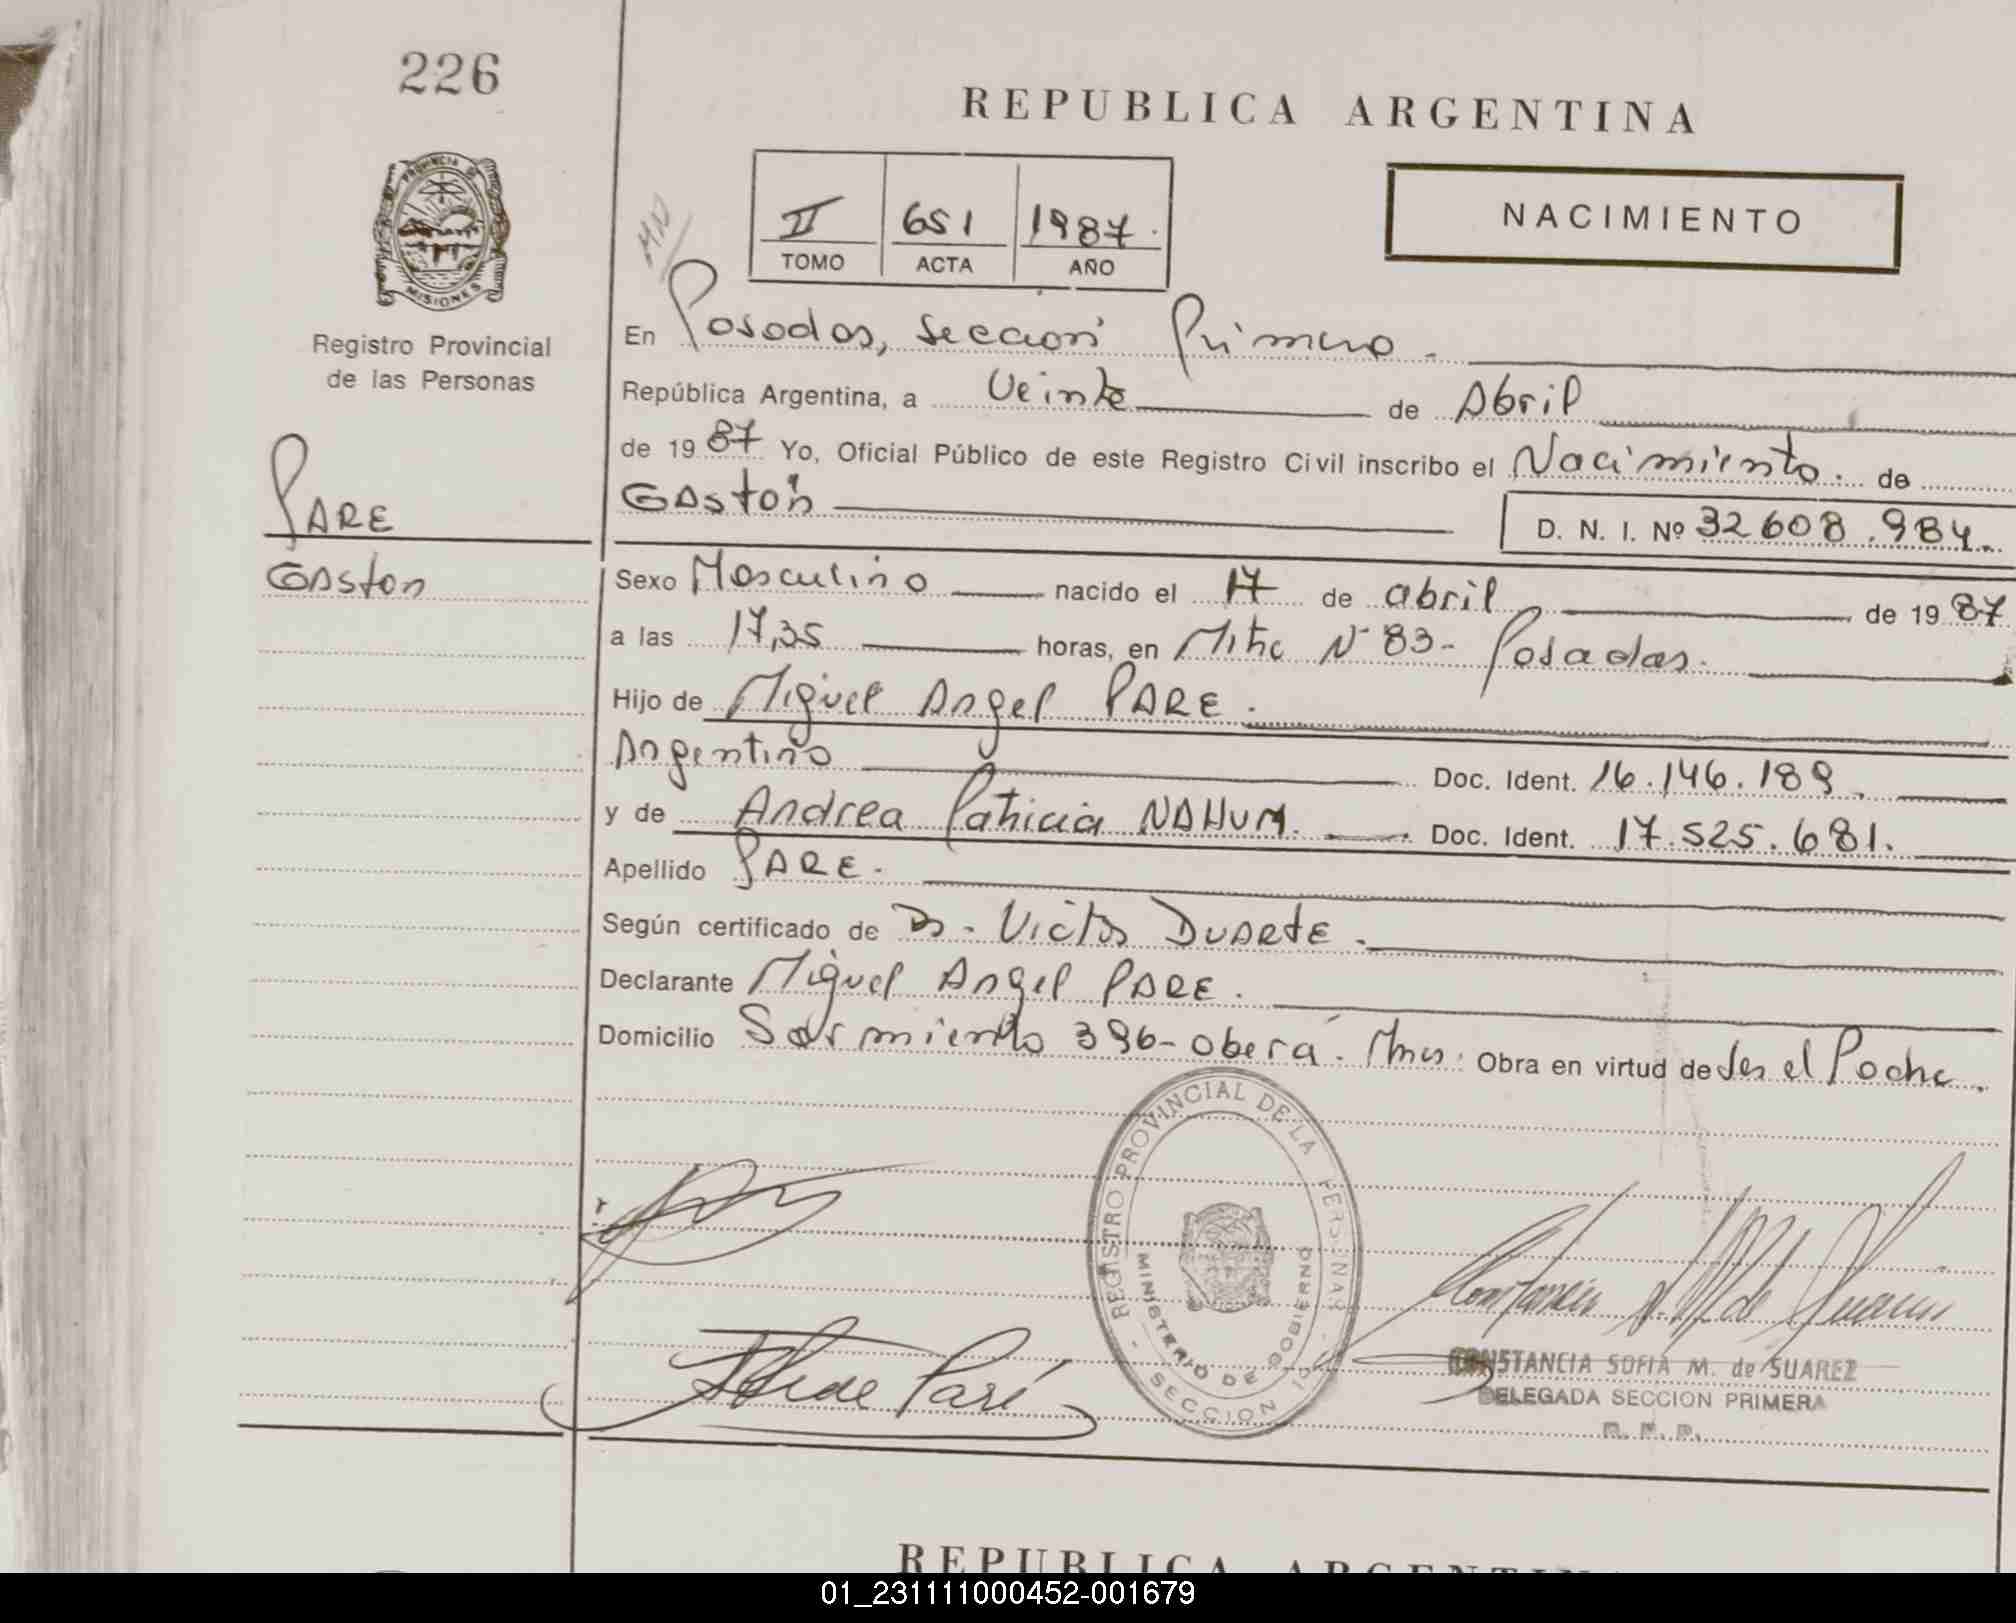 226
REPUBLICA ARGENTINA
PROVINCIA DE
MISIONES
Registro Provincial
de las Personas
II 651 1987.
TOMO ACTA AÑO
NACIMIENTO
En Posadas, sección Primera.
República Argentina, a Veinte de Abril
de 1987 Yo, Oficial Público de este Registro Civil inscribo el Nacimiento. de
PARE
Gastón
D. N. I. Nº 32608.984.
Gaston
Sexo Masculino nacido el 17 de abril de 1987
a las 17,35 horas, en Mitre Nº 83- Posadas.
Hijo de Miguel Angel PARE.
Argentino Doc. Ident. 16.146.189.
y de Andrea Patricia NAHUM. Doc. Ident. 17.525.681.
Apellido PARE.
Según certificado de Dr. Victor DUARTE.
Declarante Miguel Angel PARE.
Domicilio Sarmiento 396-Oberá. Mnes. Obra en virtud de Ser el Padre.
REGISTRO PROVINCIAL DE LA PERSONAS
MINISTERIO DE GOBIERNO
- SECCION 1º -
CONSTANCIA SOFIA M. de SUAREZ
DELEGADA SECCION PRIMERA
R. P. P.
REPUBLICA ARGENTINA
01_231111000452-001679